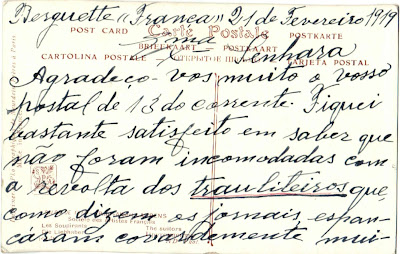 Berguette «França» 21 de Fevereiro 1919
POST CARD Carte Postale POSTKARTE
BRIEFKAART POSTKAART
CARTOLINA POSTALE TARJETA POSTAL
Ima Senhara
Agradeço-vos muito o vosso
postal de 13 do corrente. Fiquei
bastante satisfeito em saber que
não foram incomodadas com
a revolta dos trauliteiros que,
como dizem os jornais, espan-
cáram covardemente mui-
Société des Artistes Français